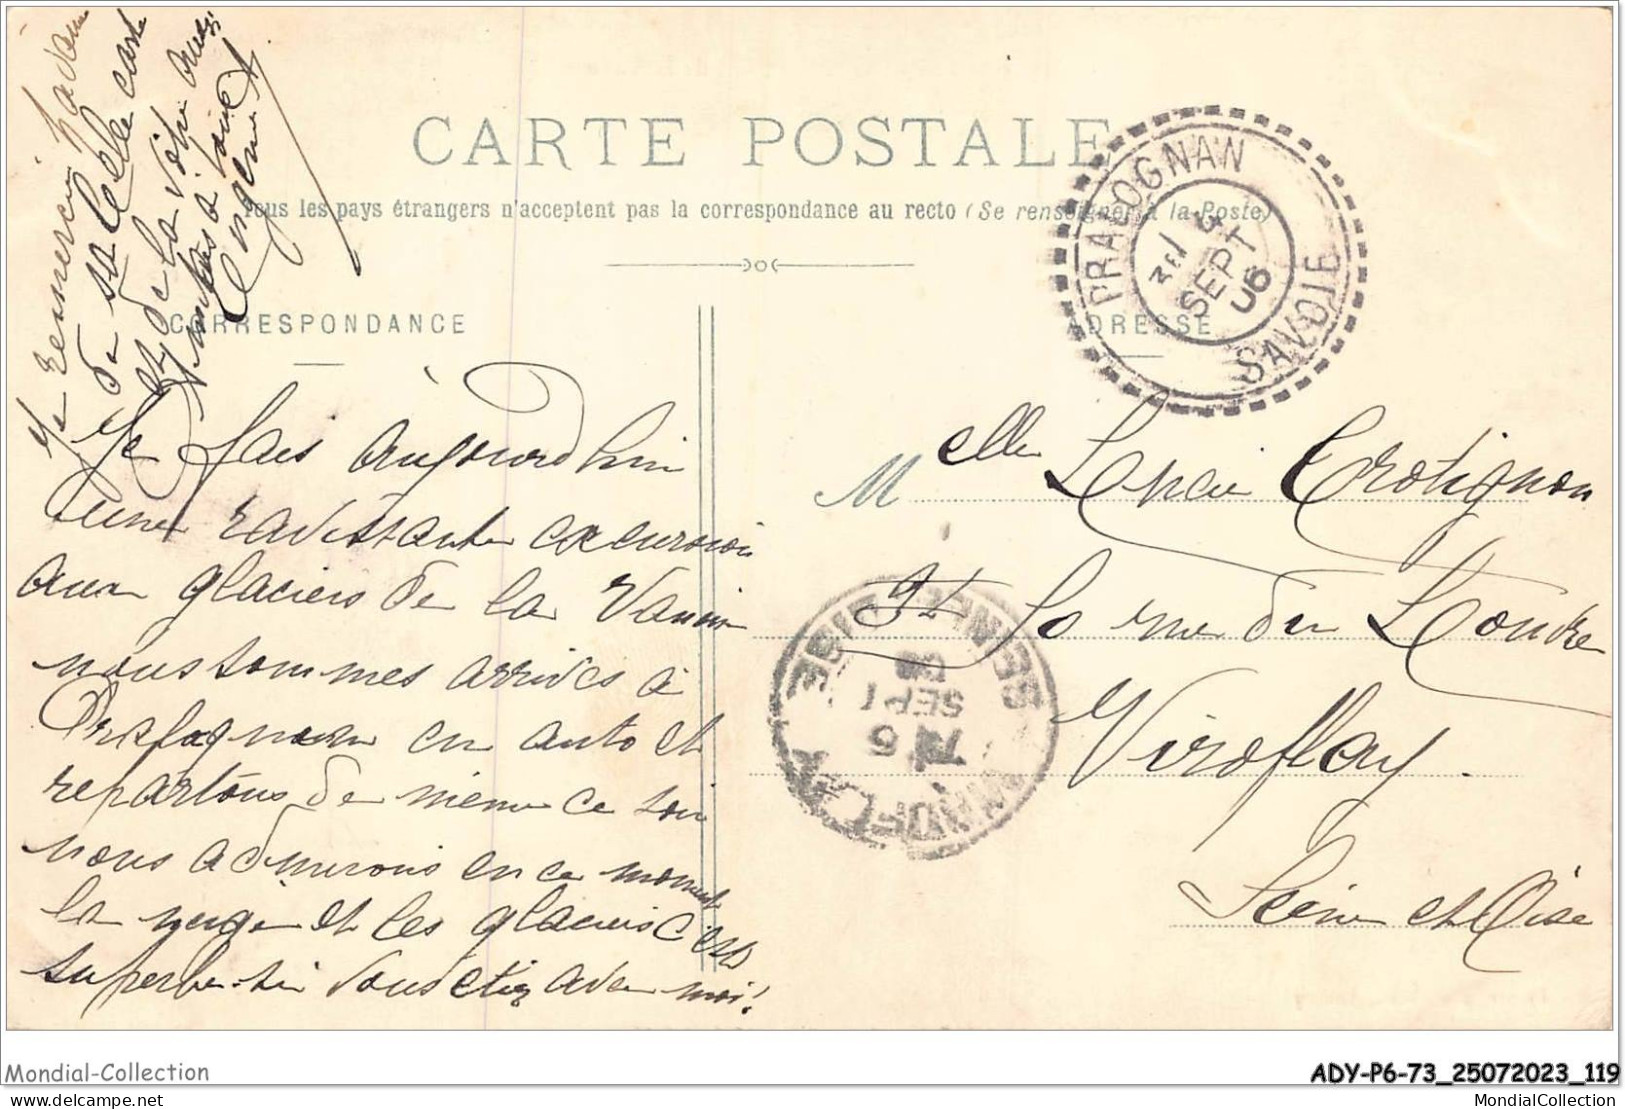 Je remercie Madame
de sa belle carte
et de la vôtre aussi
CARTE POSTALE
Tous les pays étrangers n'acceptent pas la correspondance au recto (Se renseigner à la Poste)
CORRESPONDANCE
ADRESSE
PRALOGNAN
SAVOIE
4
SEPT
06
Je fais aujourd'hui
une ravissante excursion
aux glaciers de la Vanoise
nous sommes arrivés à
Pralognan en auto et
repartons de même ce soir
nous admirons en ce moment
la neige et les glaciers c'est
superbe si vous étiez avec moi!
Melle
50 rue du Louvre
Viroflay.
Seine et Oise
SEPT
Mondial-Collection
ADY-P6-73_25072023_119
delcampe.net
MondialCollection